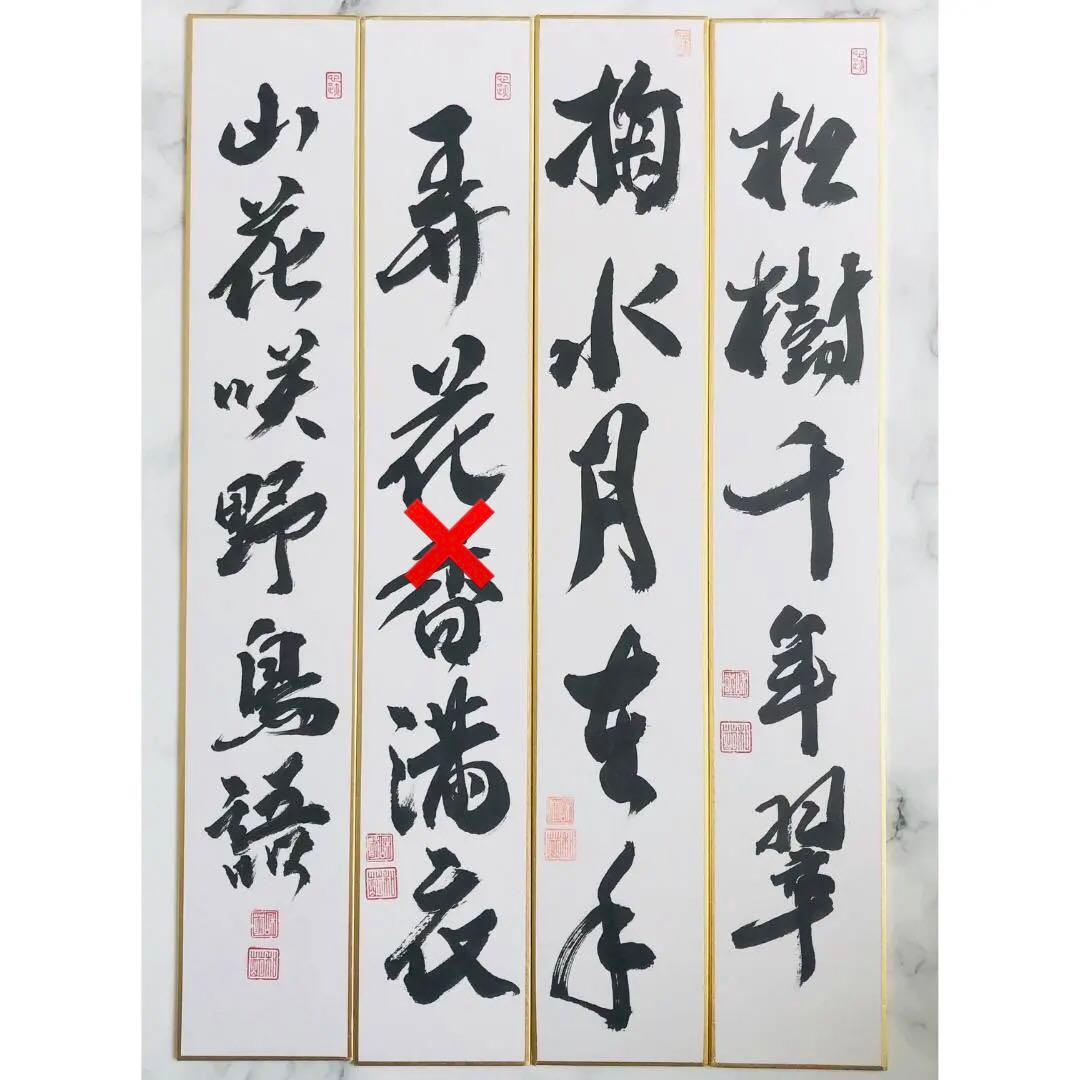 松樹千年翠
掬水月在手
弄花香満衣
山花咲野鳥語